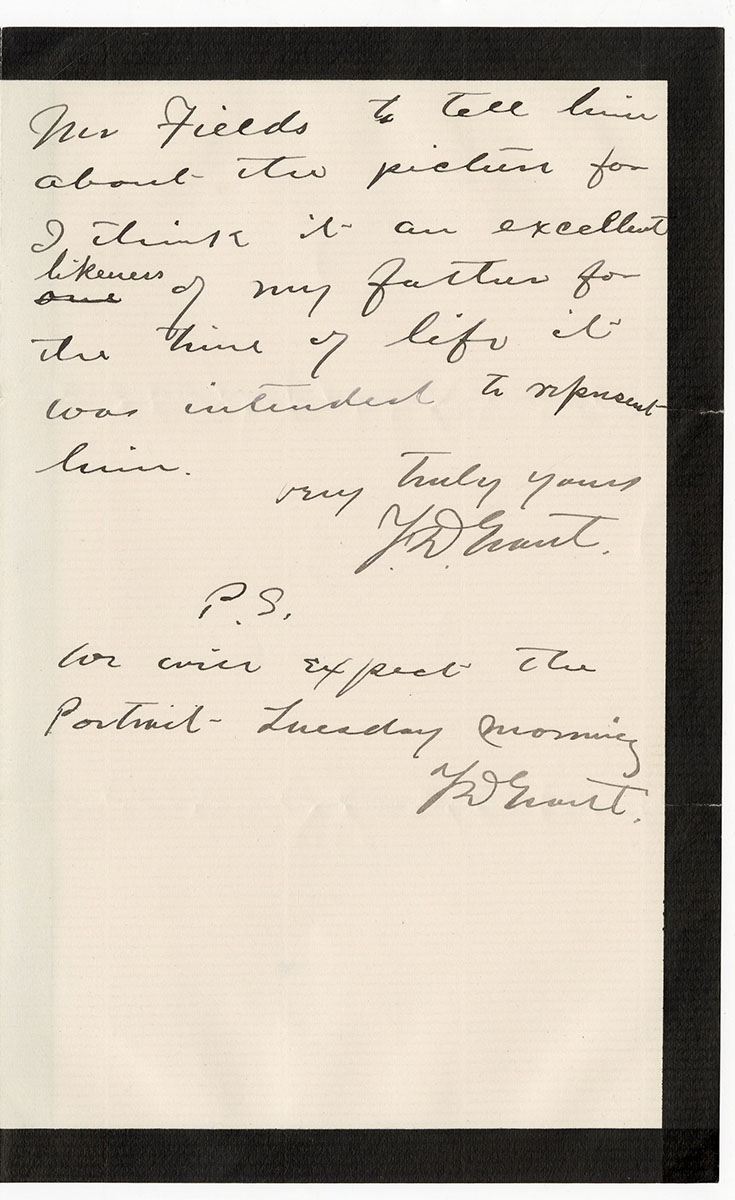 Mr Fields to tell him
about the picture for
I think it an excellent
likeness
one of my father for
the time of life it
was intended to represent
him.
very truly yours
F. D. Grant.
P.S.
We will expect the
Portrait Tuesday morning
F D Grant.